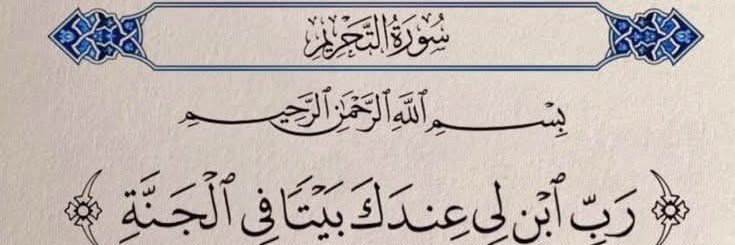 سُورَةُ التَّحْرِيمِ
بِسْمِ ٱللَّهِ ٱلرَّحْمَٰنِ ٱلرَّحِيمِ
رَبِّ ٱبْنِ لِى عِندَكَ بَيْتًا فِى ٱلْجَنَّةِ